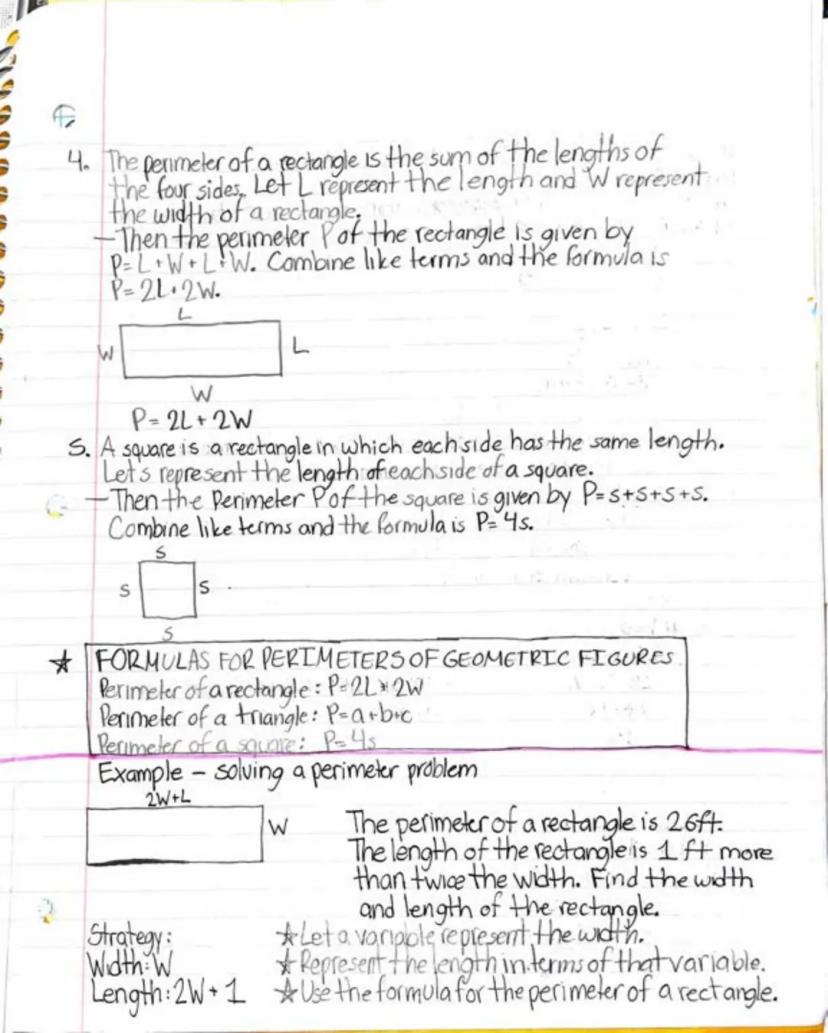 4. The perimeter of a rectangle is the sum of the lengths of
the four sides. Let L represent the length and W represent
the width of a rectangle.
—Then the perimeter P of the rectangle is given by
P=L+W+L+W. Combine like terms and the formula is
P=2L+2W.
L
W L
W
P=2L+2W
5. A square is a rectangle in which each side has the same length.
Let s represent the length of each side of a square.
—Then the Perimeter P of the square is given by P=s+s+s+s.
Combine like terms and the formula is P=4s.
S
S S
S
☆ FORMULAS FOR PERIMETERS OF GEOMETRIC FIGURES
Perimeter of a rectangle: P=2L+2W
Perimeter of a triangle: P=a+b+c
Perimeter of a square: P=4s
Example - solving a perimeter problem
2W+L
W
The perimeter of a rectangle is 26ft.
The length of the rectangle is 1 ft more
than twice the width. Find the width
and length of the rectangle.
Strategy: ☆Let a variable represent the width.
Width:W ☆Represent the length in terms of that variable.
Length:2W+1 ☆Use the formula for the perimeter of a rectangle.